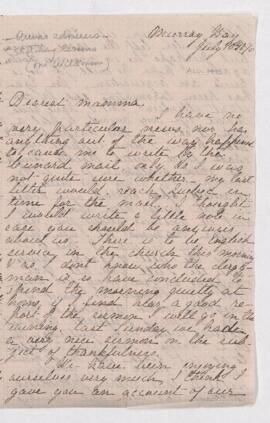 Murray Bay
July
Dearest mamma
I have no
very particular news nor has
anything out of the way happened
to cause me to write by the
mail only as I was
not quite sure whether my last
letter would reach Quebec in
time for the mail, I thought
I would write a little note in
case you should be anxious
about us. There is to be English
service in the church this morning
but I don't know who the clergy-
man is so have concluded to
spend the morning quietly at
home, if I find only a good re-
port of the sermon I will go in the
evening, last Sunday we had
a very nice sermon on the sub-
ject of thankfulness.
We have been enjoying
ourselves very much, I think I
gave you an account of our